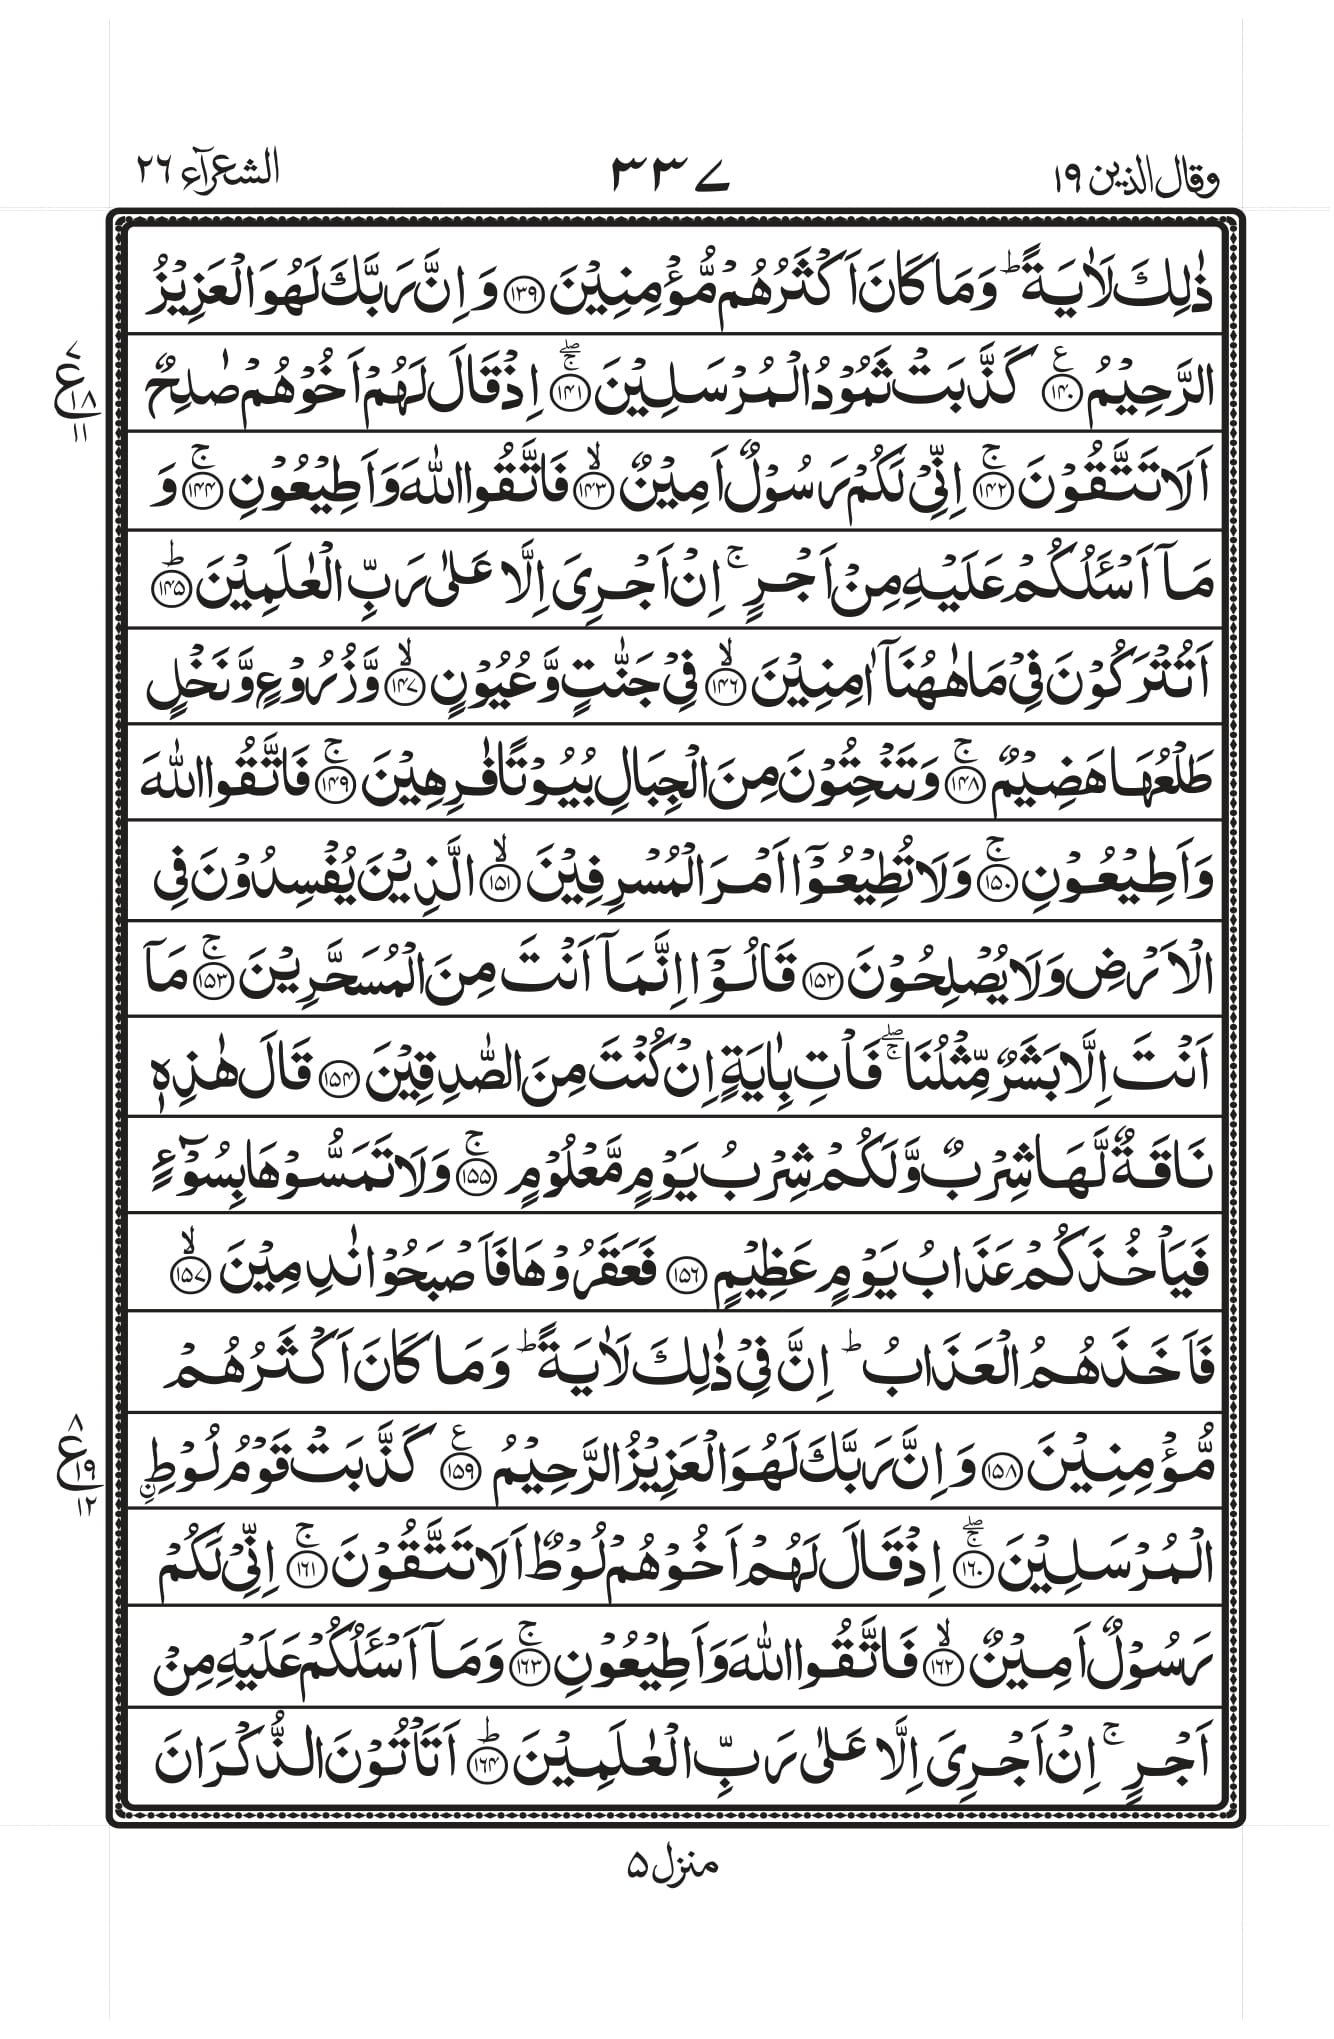 وقال الذین ۱۹
۳۳۷
الشعرآء ۲۶
ذٰلِكَ لَاٰيَةً ؕ وَمَا كَانَ اَكْثَرُهُمْ مُّؤْمِنِيْنَ ﴿۱۳۹﴾ وَ اِنَّ رَبَّكَ لَهُوَ الْعَزِيْزُ
الرَّحِيْمُ ﴿۱۴۰﴾ۧ كَذَّبَتْ ثَمُوْدُ الْمُرْسَلِيْنَ ﴿۱۴۱﴾ۚۖ اِذْ قَالَ لَهُمْ اَخُوْهُمْ صٰلِحٌ
اَلَا تَتَّقُوْنَ ﴿۱۴۲﴾ۚ اِنِّيْ لَكُمْ رَسُوْلٌ اَمِيْنٌ ﴿۱۴۳﴾ۙ فَاتَّقُوا اللّٰهَ وَ اَطِيْعُوْنِ ﴿۱۴۴﴾ۚ وَ
مَاۤ اَسْـَٔلُكُمْ عَلَيْهِ مِنْ اَجْرٍ ۚ اِنْ اَجْرِيَ اِلَّا عَلٰى رَبِّ الْعٰلَمِيْنَ ﴿۱۴۵﴾ؕ
اَتُتْرَكُوْنَ فِيْ مَا هٰهُنَاۤ اٰمِنِيْنَ ﴿۱۴۶﴾ۙ فِيْ جَنّٰتٍ وَّ عُيُوْنٍ ﴿۱۴۷﴾ۙ وَّ زُرُوْعٍ وَّ نَخْلٍ
طَلْعُهَا هَضِيْمٌ ﴿۱۴۸﴾ۚ وَ تَنْحِتُوْنَ مِنَ الْجِبَالِ بُيُوْتًا فٰرِهِيْنَ ﴿۱۴۹﴾ۚ فَاتَّقُوا اللّٰهَ
وَ اَطِيْعُوْنِ ﴿۱۵۰﴾ۚ وَ لَا تُطِيْعُوْۤا اَمْرَ الْمُسْرِفِيْنَ ﴿۱۵۱﴾ۙ الَّذِيْنَ يُفْسِدُوْنَ فِي
الْاَرْضِ وَ لَا يُصْلِحُوْنَ ﴿۱۵۲﴾ قَالُوْۤا اِنَّمَاۤ اَنْتَ مِنَ الْمُسَحَّرِيْنَ ﴿۱۵۳﴾ۚ مَاۤ
اَنْتَ اِلَّا بَشَرٌ مِّثْلُنَا ۚۖ فَاْتِ بِاٰيَةٍ اِنْ كُنْتَ مِنَ الصّٰدِقِيْنَ ﴿۱۵۴﴾ قَالَ هٰذِهٖ
نَاقَةٌ لَّهَا شِرْبٌ وَّ لَكُمْ شِرْبُ يَوْمٍ مَّعْلُوْمٍ ﴿۱۵۵﴾ۚ وَ لَا تَمَسُّوْهَا بِسُوْٓءٍ
فَيَاْخُذَكُمْ عَذَابُ يَوْمٍ عَظِيْمٍ ﴿۱۵۶﴾ فَعَقَرُوْهَا فَاَصْبَحُوْا نٰدِمِيْنَ ﴿۱۵۷﴾ۙ
فَاَخَذَهُمُ الْعَذَابُ ؕ اِنَّ فِيْ ذٰلِكَ لَاٰيَةً ؕ وَ مَا كَانَ اَكْثَرُهُمْ
مُّؤْمِنِيْنَ ﴿۱۵۸﴾ وَ اِنَّ رَبَّكَ لَهُوَ الْعَزِيْزُ الرَّحِيْمُ ﴿۱۵۹﴾ۧ كَذَّبَتْ قَوْمُ لُوْطِ ۣ
الْمُرْسَلِيْنَ ﴿۱۶۰﴾ۚۖ اِذْ قَالَ لَهُمْ اَخُوْهُمْ لُوْطٌ اَلَا تَتَّقُوْنَ ﴿۱۶۱﴾ۚ اِنِّيْ لَكُمْ
رَسُوْلٌ اَمِيْنٌ ﴿۱۶۲﴾ۙ فَاتَّقُوا اللّٰهَ وَ اَطِيْعُوْنِ ﴿۱۶۳﴾ۚ وَ مَاۤ اَسْـَٔلُكُمْ عَلَيْهِ مِنْ
اَجْرٍ ۚ اِنْ اَجْرِيَ اِلَّا عَلٰى رَبِّ الْعٰلَمِيْنَ ﴿۱۶۴﴾ؕ اَتَاْتُوْنَ الذُّكْرَانَ
۷
ع
۱۸
۱۱
۸
ع
۱۹
۱۲
منزل ۵